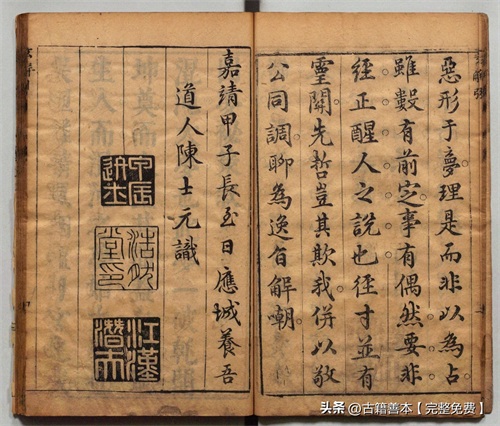 惡形于夢理是而非以為占
雖數有前定事有偶然要非
經正醒人之說也徑寸並有
靈關先哲豈其欺我併以敬
公同調聊為逸旨解嘲
嘉靖甲子長至日應城養吾
道人陳士元識
甲辰進士
江漢潛夫
头条 @古籍善本【完整免费】